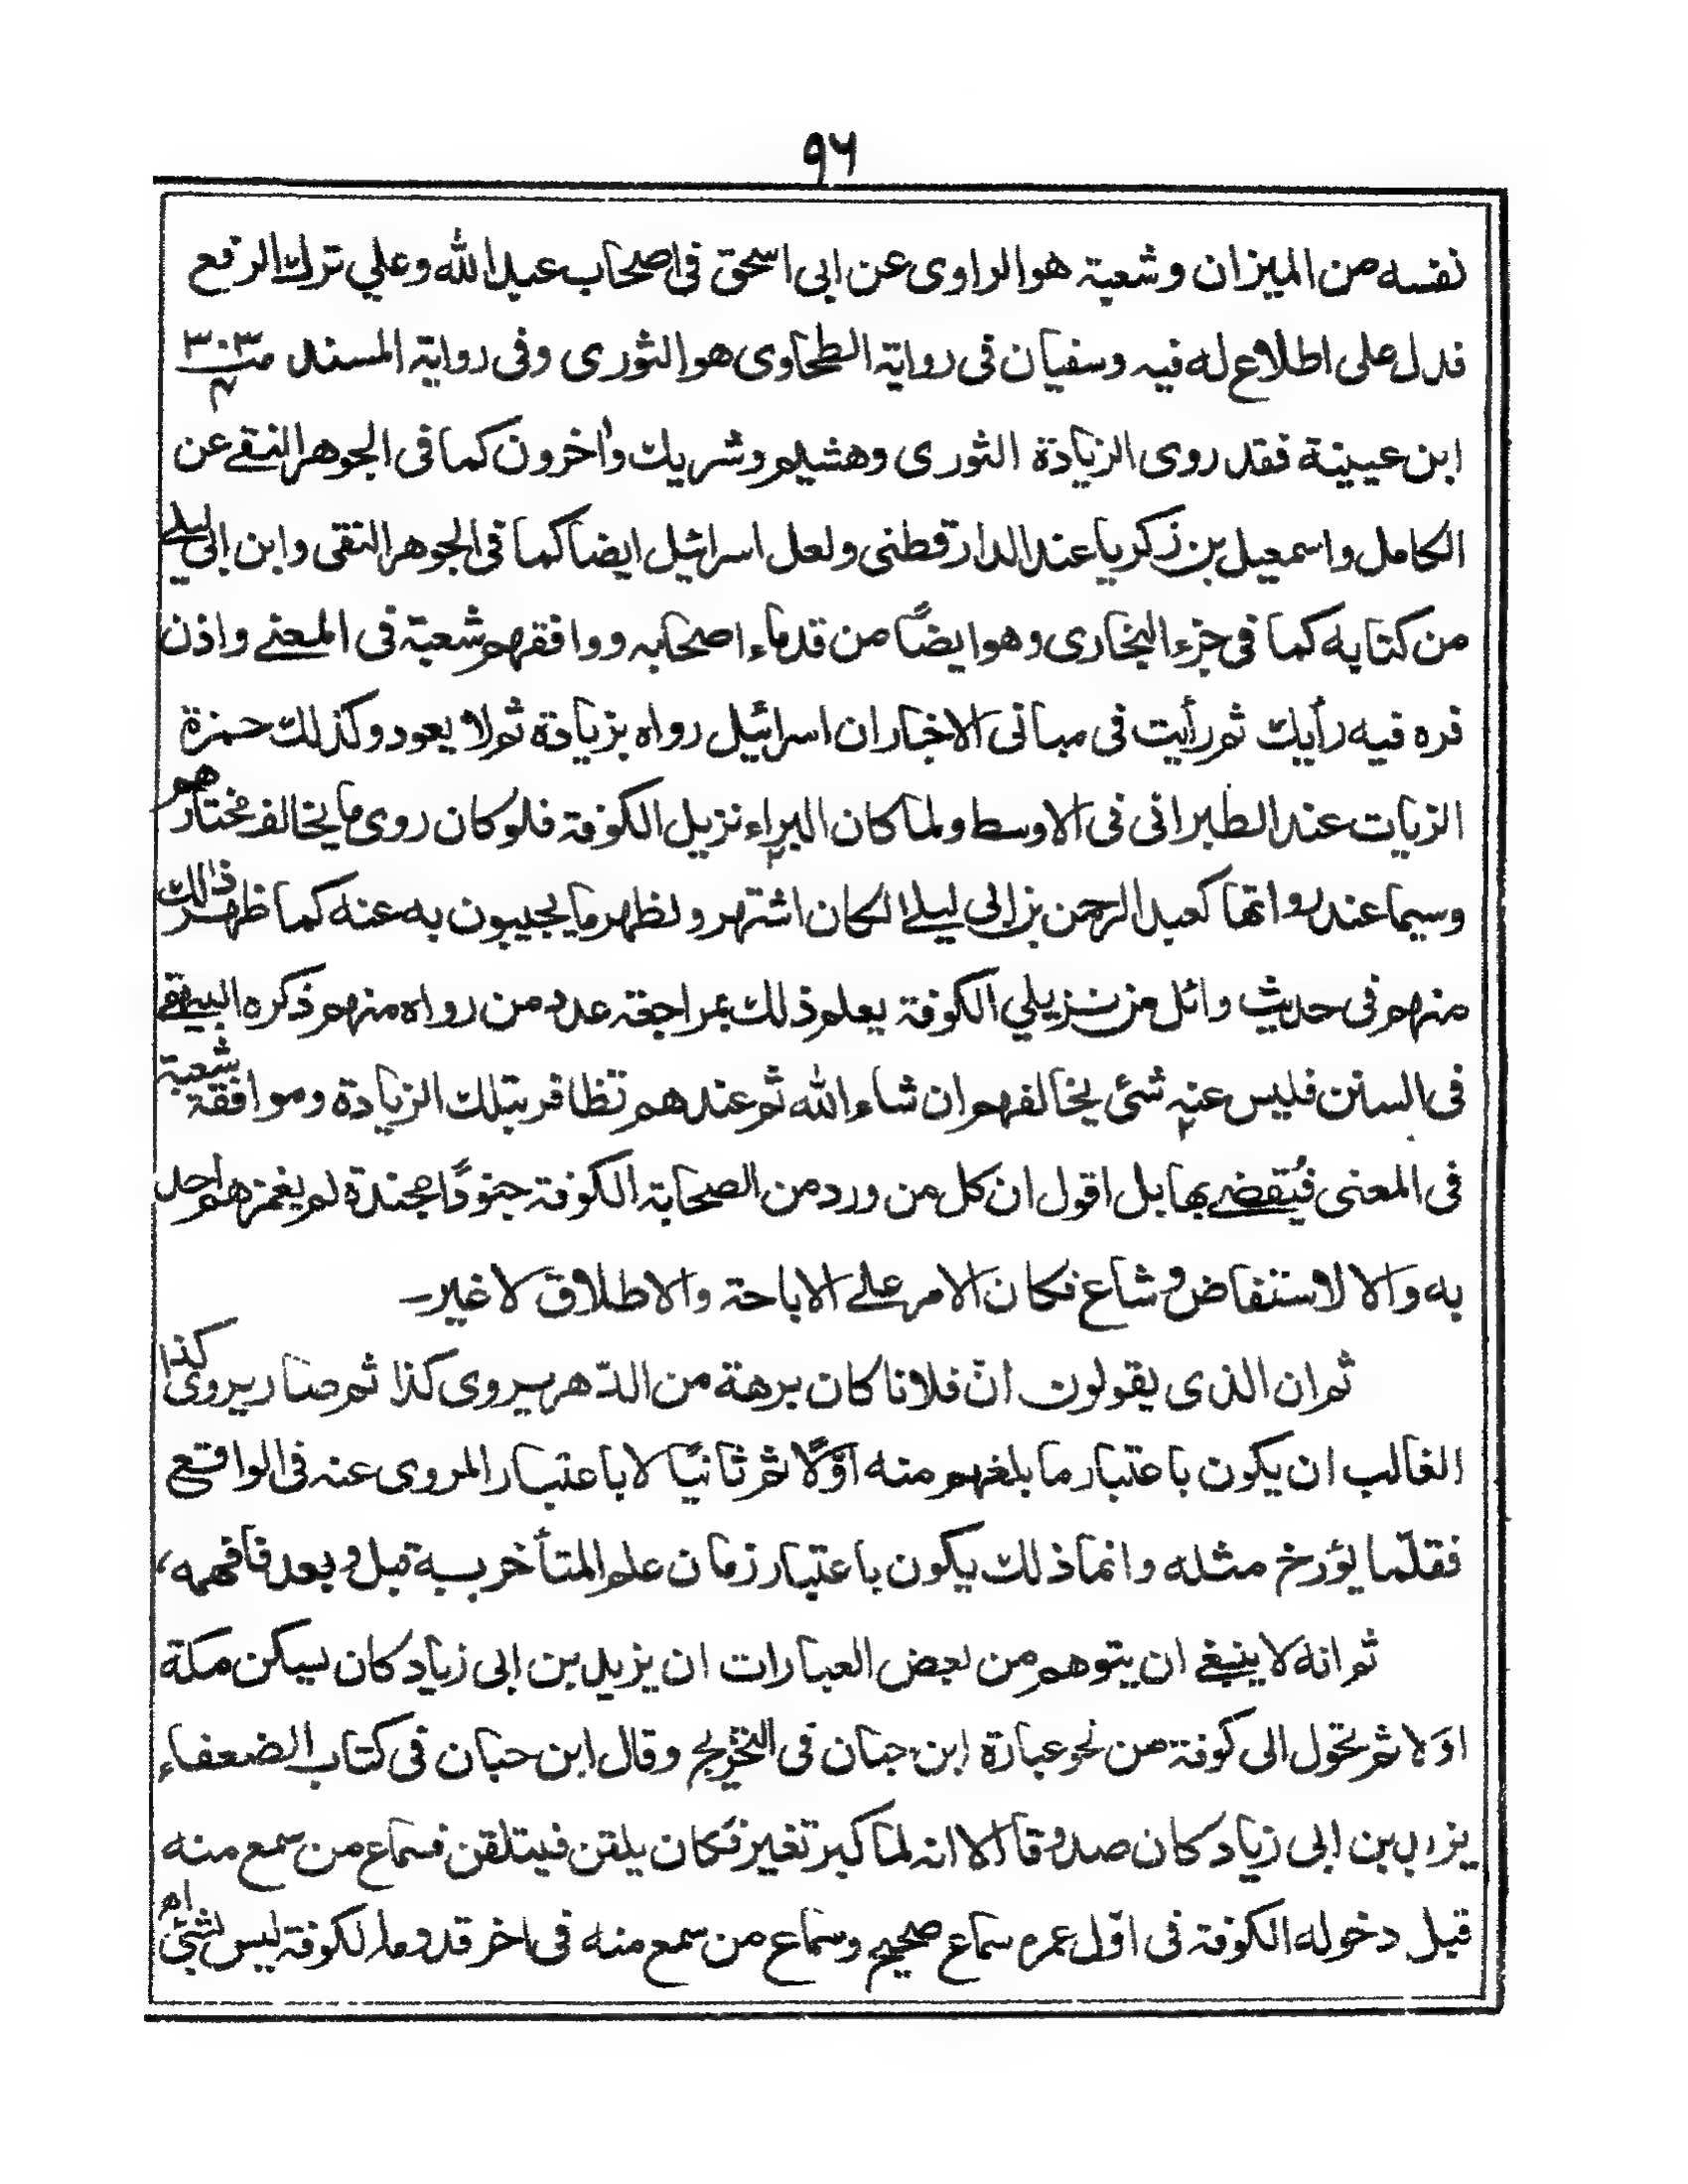 ٩٦
نفسه من الميزان وشعبة هو الراوى عن ابى اسحق فى اصحاب عبد الله وعلي ترك الرفع
فدل على اطلاع له فيه وسفيان فى رواية الطحاوى هو الثورى وفى رواية المسند صـ٣٠٣ ٤
ابن عيينة فقد روى الزيادة الثورى وهشيم وشريك واٰخرون كما فى الجوهر النقے عن
الكامل واسمعيل بن زكريا عند الدارقطنى ولعل اسرائيل ايضا كما فى الجوهر النقى وابن ابى ليلے
من كتابه كما فى جزء البخارى وهو ايضًا من قدماء اصحابه ووافقهم شعبة فى المعنے واذن
فره فيه رأيك ثم رأيت فى مبانى الاخبار ان اسرائيل رواه بزيادة ثم لا يعود وكذلك حمزة
الزيات عند الطبرانى فى الاوسط ولما كان البراء نزيل الكوفة فلو كان روى ما يخالف مختارهم
وسيما عند رواتها كعبد الرحمن بن ابى ليلے لكان اشتهر ولظهر ما يجيبون به عنه كما ظهر ذالك
منهم فى حديث وائل من نزيلي الكوفة يعلم ذلك بمراجعة عدد من رواه منهم ذكره البيهقے
فى السنن فليس عنه شئ يخالفهم ان شاء الله ثم عندهم تظافر بتلك الزيادة وموافقة شعبة
فى المعنى فيُقضے بها بل اقول ان كل من ورد من الصحابة الكوفة جنودًا مجندة لم يغمزهم احد
به والا لاستفاض وشاع فكان الامر علے الاباحة والاطلاق لا غير ـ
ثم ان الذى يقولون انّ فلانا كان برهة من الدّهر يروى كذا ثم صار يروى كذا
الغالب ان يكون باعتبار ما بلغهم منه اوّلًا ثم ثانيًا لا باعتبار المروى عنه فى الواقع
فقلّما يؤرخ مثله وانما ذلك يكون باعتبار زمان علم المتأخر بـه قبل وبعد فافهمه،
ثم انه لا ينبغے ان يتوهم من بعض العبارات ان يزيد بن ابى زياد كان يسكن مكة
اولا ثم تحول الى كوفة من نحو عبارة ابن حبان فى التخريج وقال ابن حبان فى كتاب الضعفاء
يزيد بن ابى زياد كان صدوقا الا انه لما كبر تغير فكان يلقن فيتلقن فسماع من سمع منه
قبل دخوله الكوفة فى اوّل عمره سماع صحيح وسماع من سمع منه فى اٰخر قدومه الكوفة ليس بشئ اھ